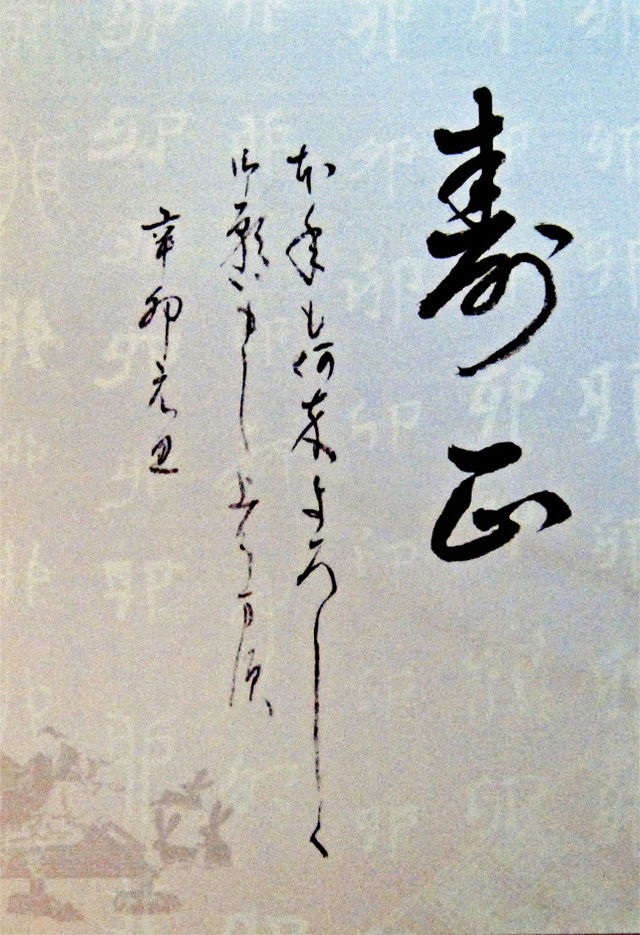 寿正
本年も何卒よろしく
御願い申し上げます
辛卯元旦